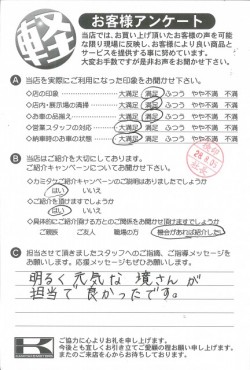 軽
お客様アンケート
当店では、お買い上げ頂いたお客様の声を可能
な限り現場に反映し、お客様により良い商品と
サービスを提供する事に努めています。
大変お手数ですが是非お声をお聞かせ下さい。
A 当店を実際にご利用になった印象をお聞かせ下さい。
◇店の印象 大満足 満足 ふつう やや不満 不満
◇店内・展示場の清掃 大満足 満足 ふつう やや不満 不満
◇お車の品揃え 大満足 満足 ふつう やや不満 不満
◇営業スタッフの対応 大満足 満足 ふつう やや不満 不満
◇納車時のお車の状態 大満足 満足 ふつう やや不満 不満
B 当店はご紹介を大切にしております。
ご紹介キャンペーンについてお聞かせ下さい。
◇カミタケご紹介キャンペーンのご説明はありましたでしょうか
はい いいえ
◇ご紹介を頂けますでしょうか
はい いいえ
◇具体的にご紹介頂ける方とのご関係をお聞かせ頂けますでしょうか
ご親族 ご友人 職場の方 機会があれば紹介したい
C 担当させて頂きましたスタッフへのご指摘、ご指導メッセージを
お願いします。応援メッセージもぜひお願いします。
明るく元気な境さんが
担当で良かったです。
K
ご協力に心よりお礼を申し上げます。
今後とも宜しくお引き立てご愛顧の程お願い申し上げます。
またのご来店を心からお待ちしております。